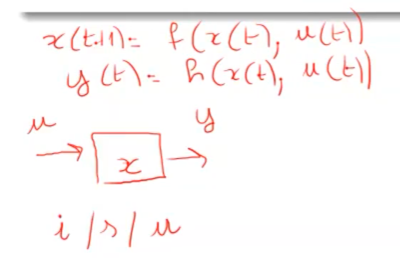 x(t+1) = f(x(t), u(t))
y(t) = h(x(t), u(t))
u y
x
i/s/u